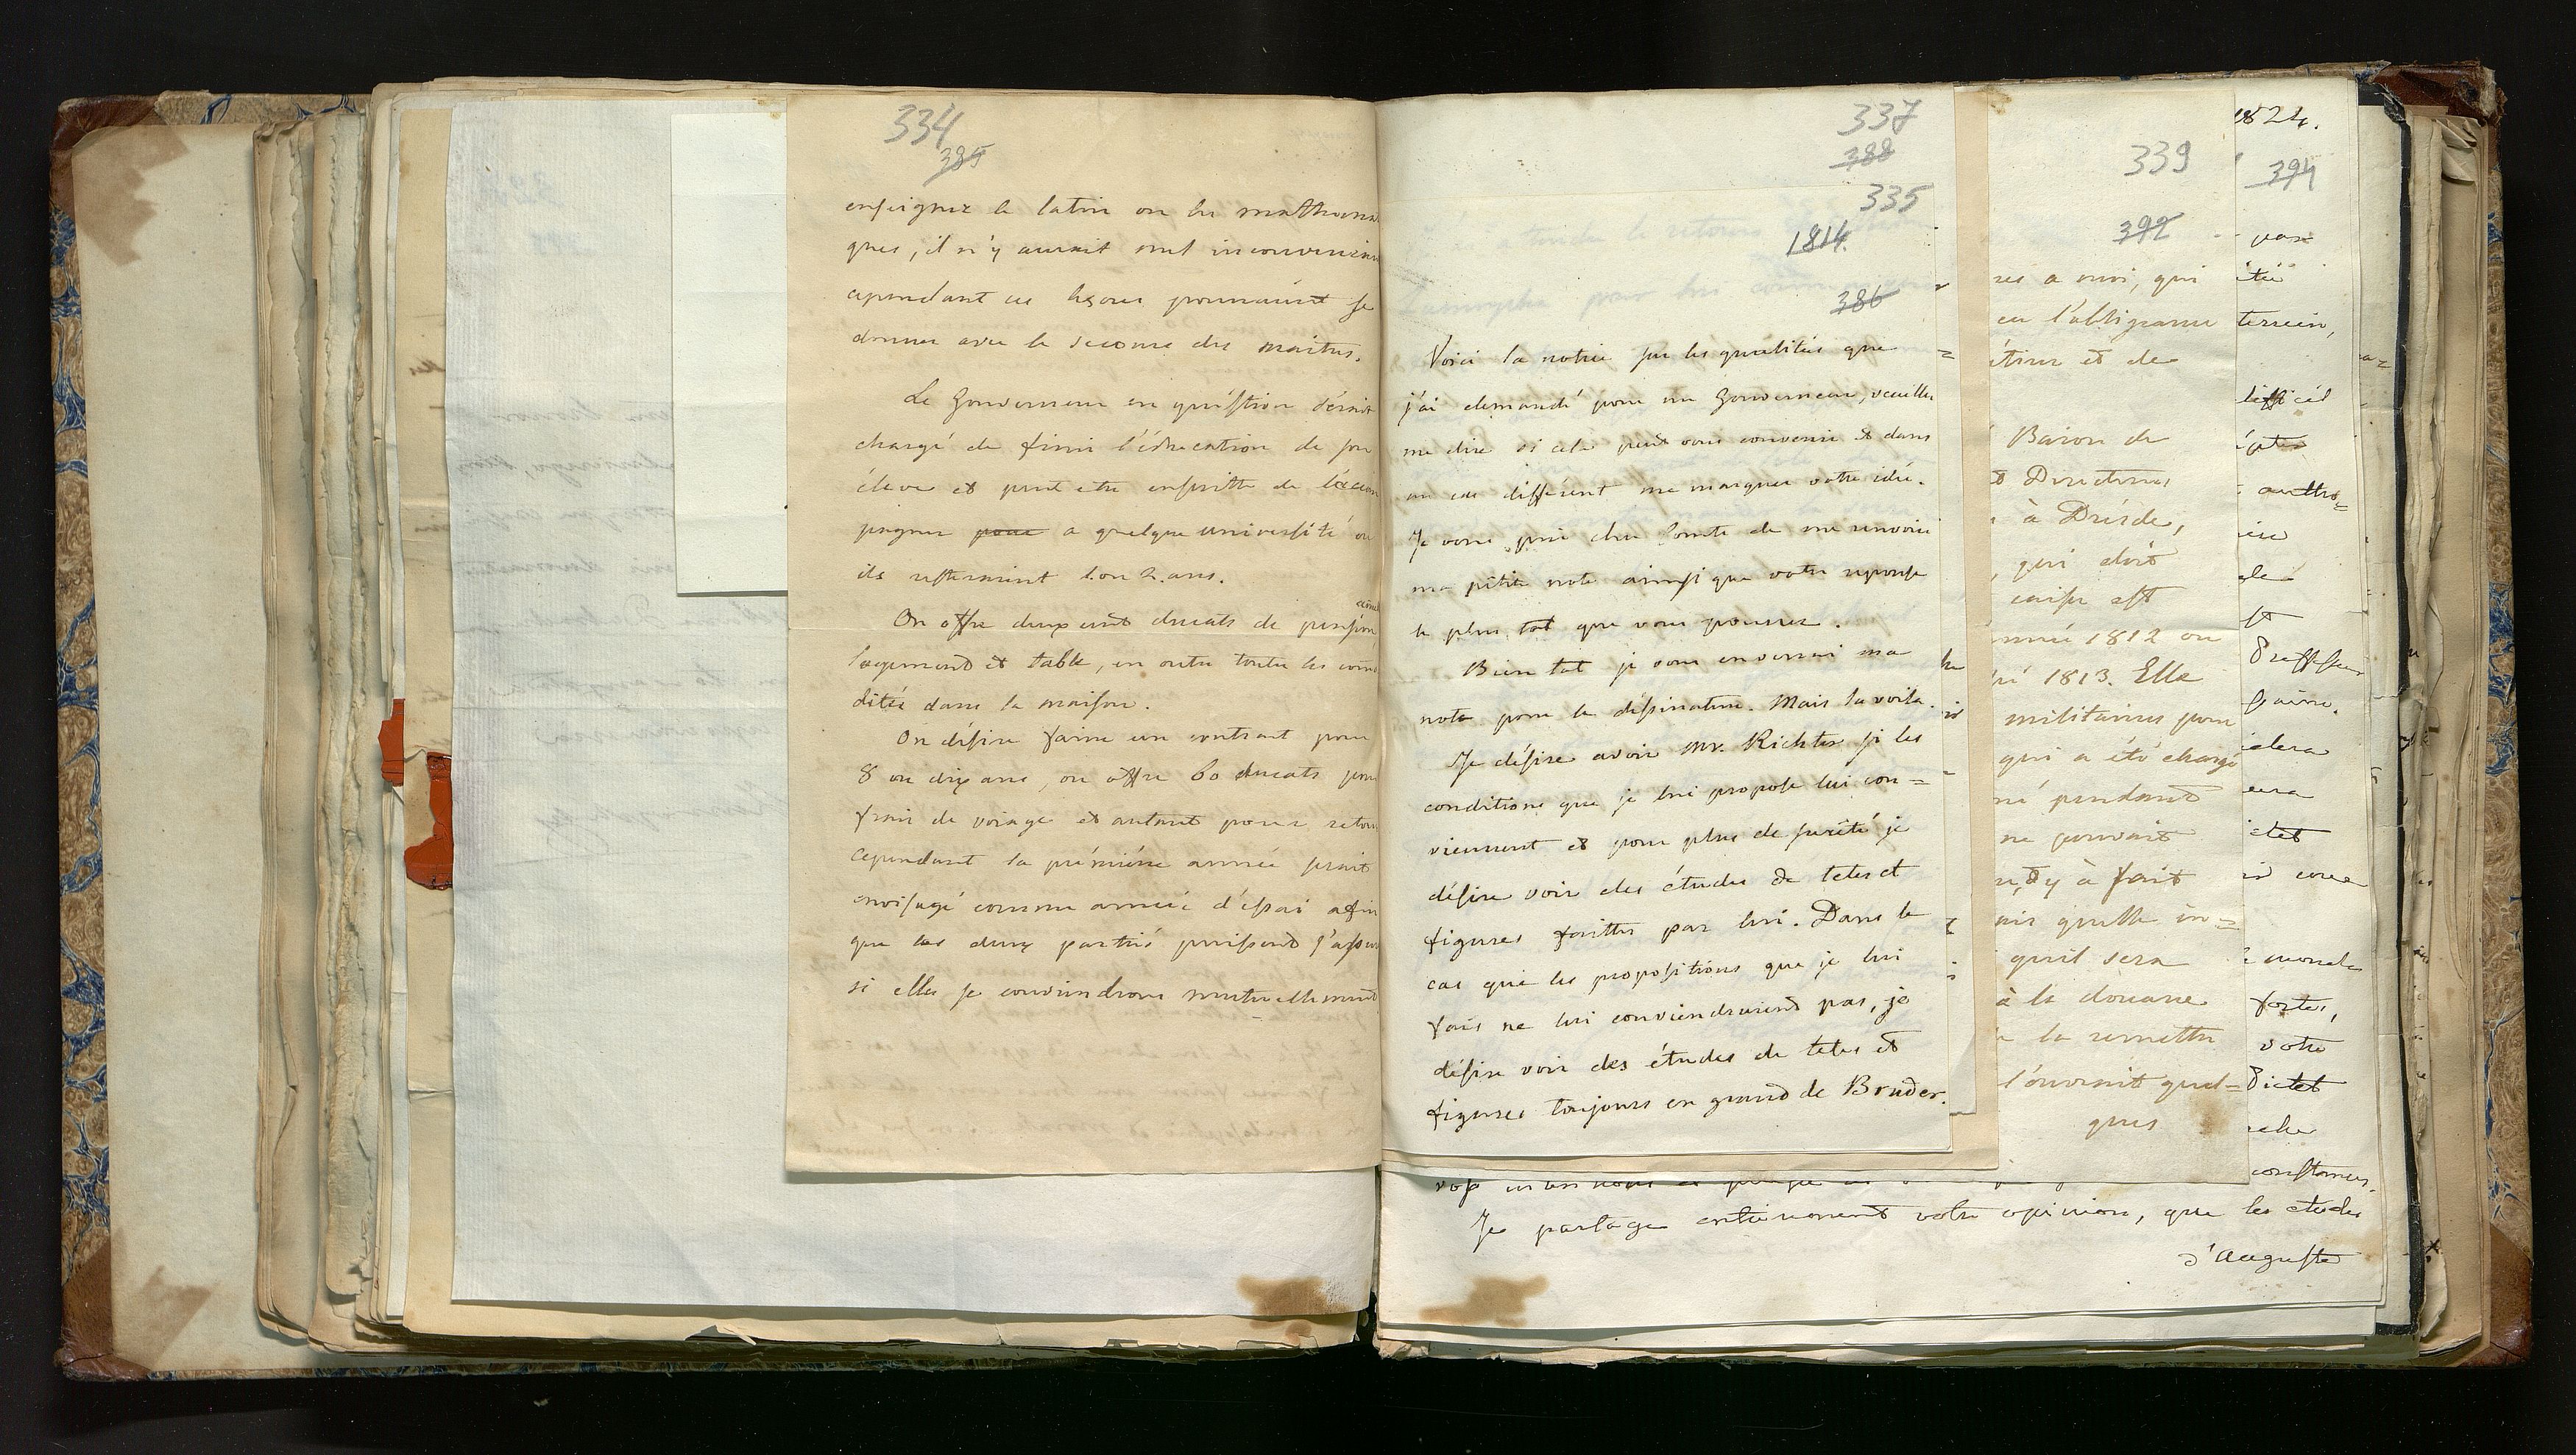 334
385
enseigner le latin ou les mathemati
ques, il n'y aurait nul inconvenient
cependant ces leçons pourraient se
donner avec le secours des maitres.
Le Gouverneur en quéstion sérait
chargé de finir l'éducation de son
éleve et peut etre ensuitte de l'accom
pagner pour a quelque université ou
ils resteraient 1. ou 2. ans.
On offre deux cent ducats de pension
logement et table, en outre toutes les como
ditées dans la maison.
On désire faire un contract pour
8 ou dix ans, on offre 60 ducats pour
frais de voiage et autant pour retour
cependant la prémiére année serait
envisagé comme année d'éssai afin
que les deux partiés puissent s'assurer
si elles se conviendrons mutuellement
337
388
335
1814.
386
Voici la notice sur les qualités que
j'ai demandé pour un Gouverneur, veuillez
me dire si cela peut vous convenir et dans
un cas différent me marquer votre idée.
Je vous prie cher Comte de me renvoier
ma pétite note ainsi que votre reponse
le plus tot que vous pourrez.
Bien tot je vous enverrai ma
note pour le déssinateur. Mais la voila.
Je désire avoir Mr. Richter si les
conditions que je lui propose lui con=
viennent et pour plus de sureté je
désire voir des études de tetes et
figures faittes par lui. Dans le
cas que les propositions que je lui
fais ne lui conviendraient pas, je
désire voir des études de tetes et
figures toujours en grand de Bruder.
339
392
res a moi, qui
eu l'obligeance
étirer et de
Baron de
Directeur
à Drésde,
, qui doit
caisse est
année 1812 ou
1813. Elle
militaires pour
qui a été chargé
né pendant
ne pouvait
à fait
quelle in=
qu'il sera
à la douane
la remettre
l'ouvrait quel=
ques
1824.
394
pas
terrein,
autho=
Professeur
morales
fortes,
votre
constances.
Je partage entierement votre opinion, que les etudes
d'Auguste